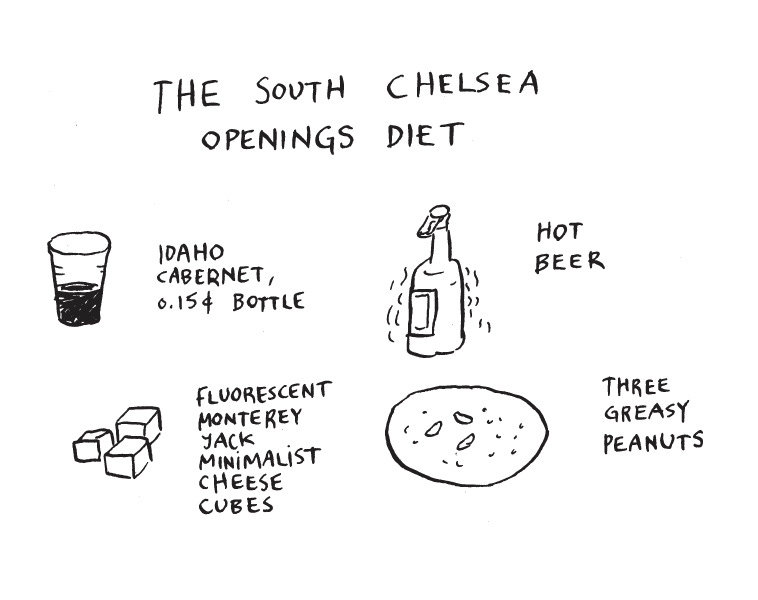 THE SOUTH CHELSEA
OPENINGS DIET
IDAHO
CABERNET,
0.15¢ BOTTLE
HOT
BEER
FLUORESCENT
MONTEREY
JACK
MINIMALIST
CHEESE
CUBES
THREE
GREASY
PEANUTS